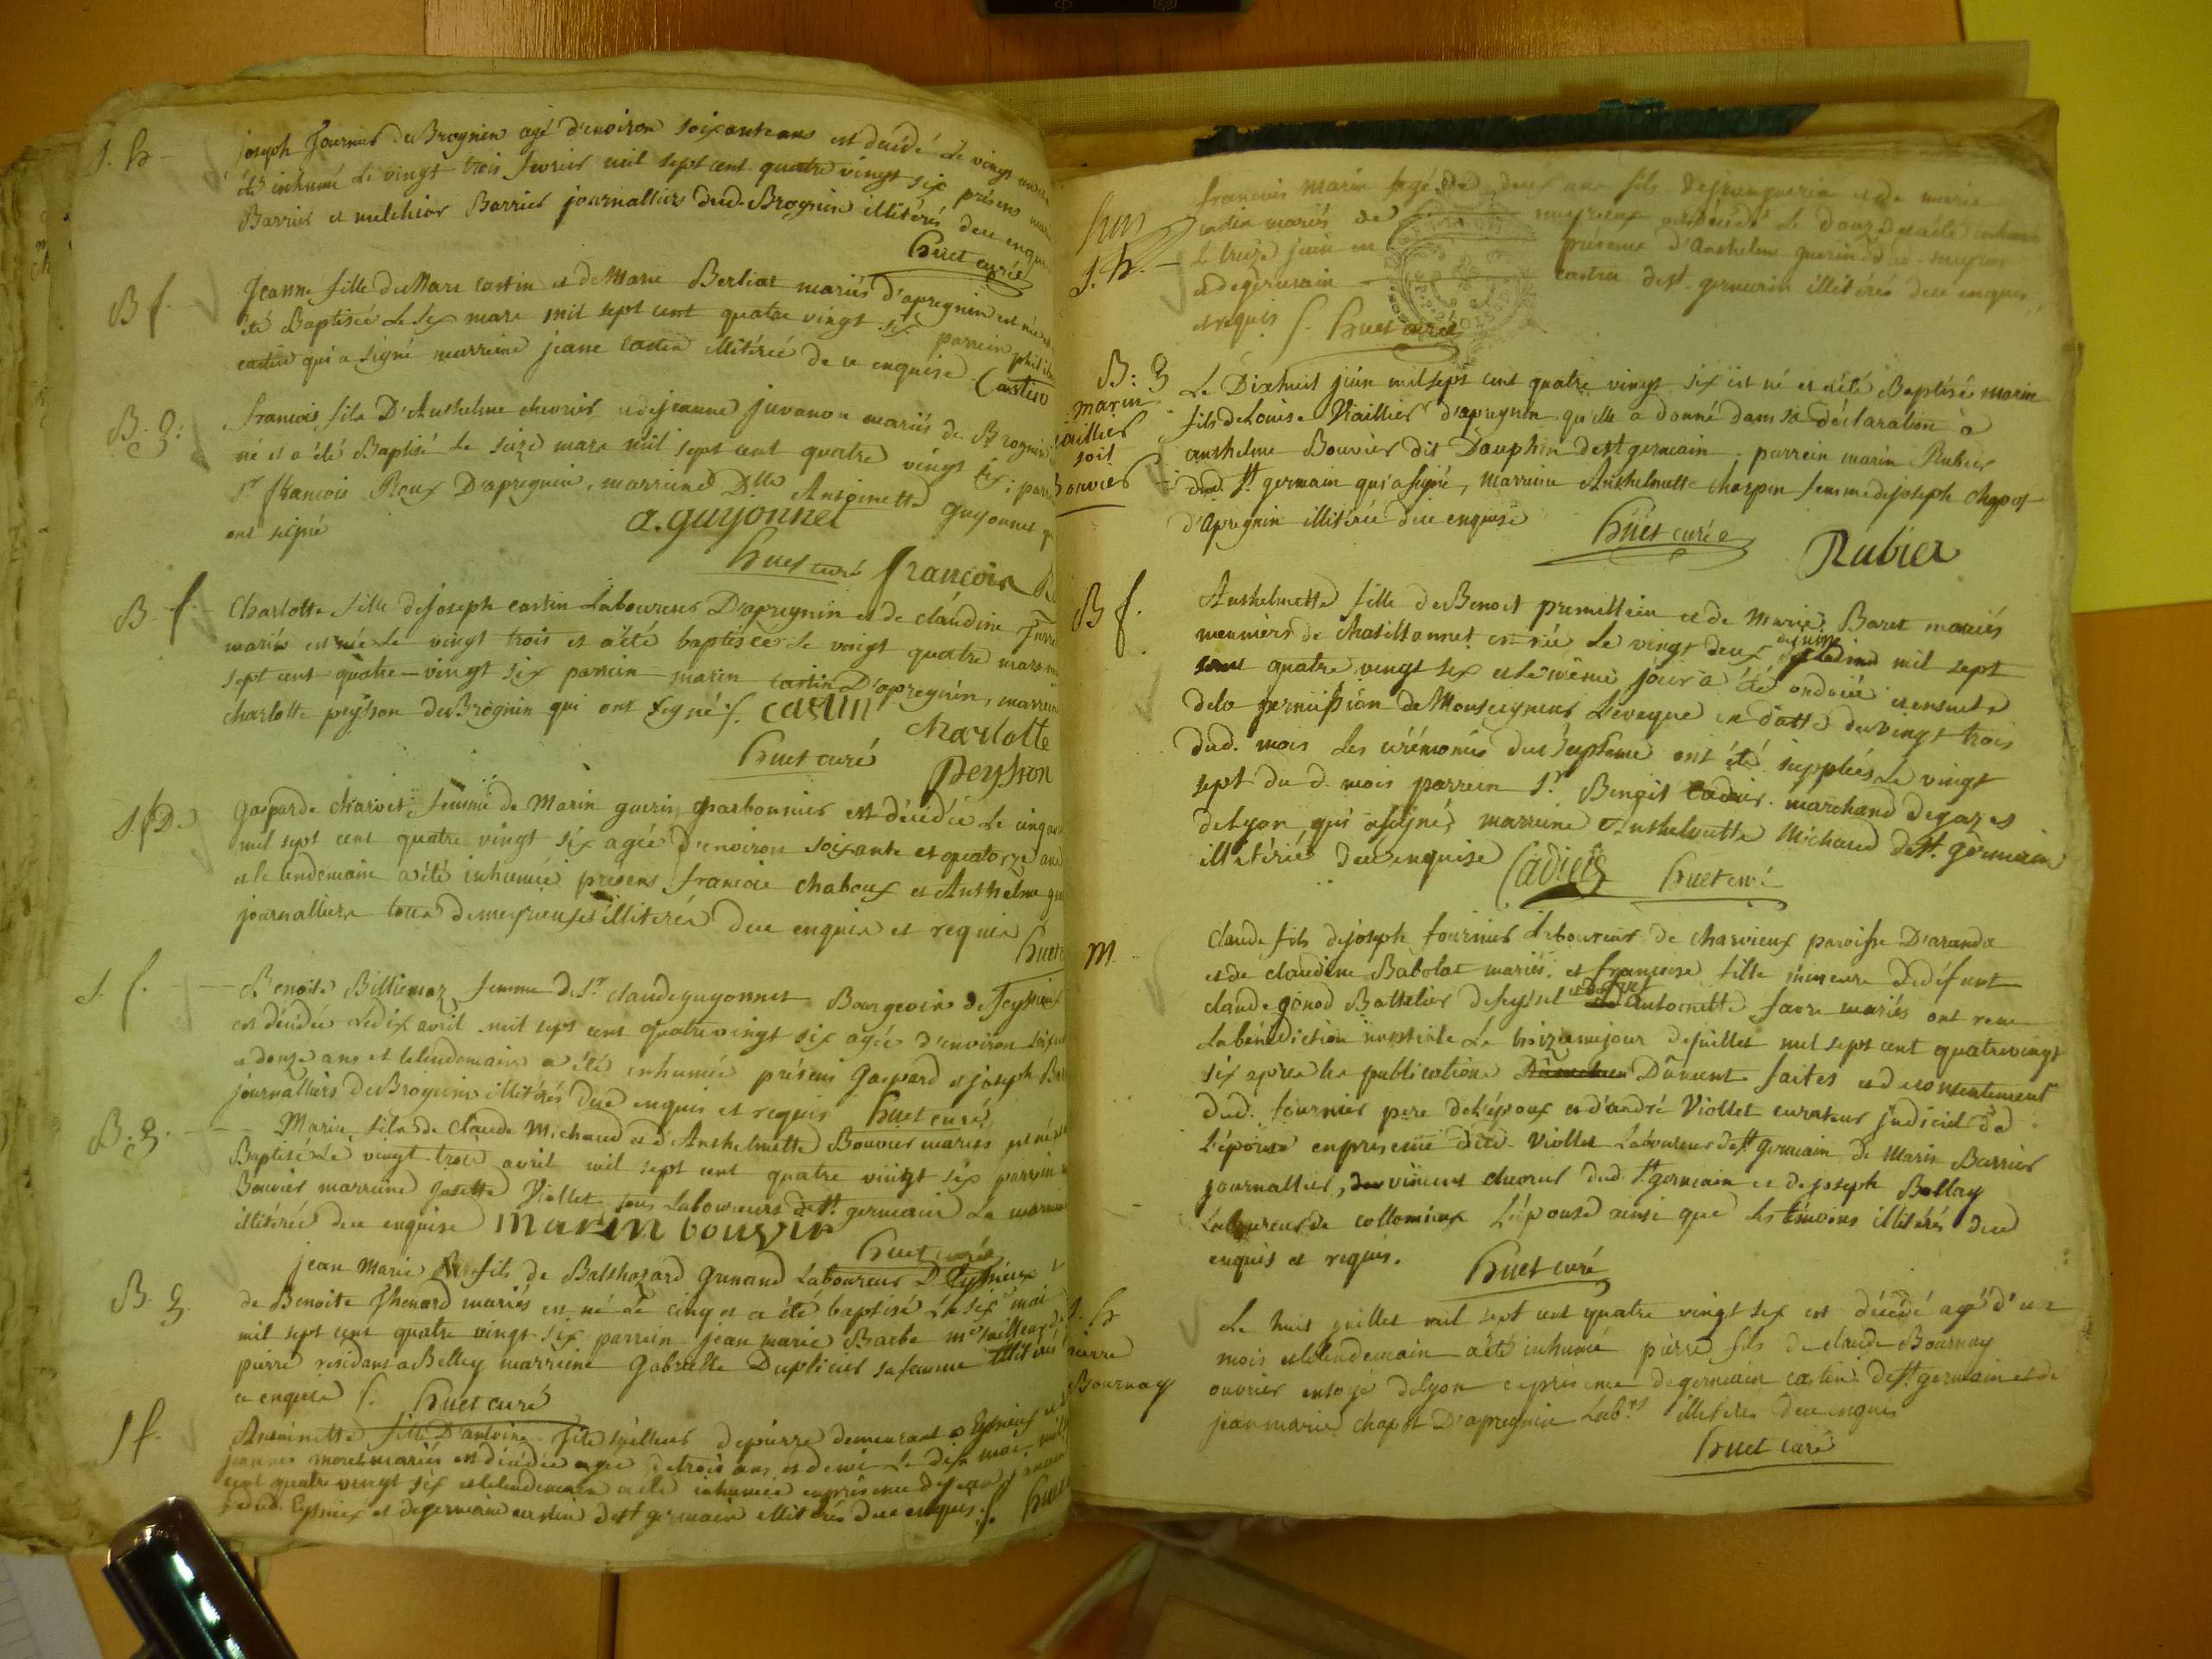 S. h -
joseph fournier de Brognin agé d'environ soixante ans est décédé le vingt
été inhumé le vingt trois fevrier mil sept cent quatre vingt six présens
Barrier et melchior Barrier journalliers dud. Brognin illitérés de ce enquis
huet curé
B f.
Jeanne fille de Marc castin et de Marie Berliat mariés d'apregnin est née
été Baptisée le six mars mil sept cent quatre vingt six parrein
castin qui a signé marreine jeane castin illitérée de ce enquise Castin
B. g:
francois fils D'Anthelme chevrier et de jeanne juvanon mariés de Brognin
né et a été Baptisé le seize mars mil sept cent quatre vingt six; par
Sr francois Roux D'apregnin, marreine Dlle Antoinette guyonnet
ont signé
a. guyonnet
huet curé francois
B. f.
Charlotte fille de joseph castin Laboureur D'apregnin et de claudine
mariés est née le vingt trois et a été baptisée le vingt quatre mars
sept cent quatre-vingt six parrein marin castin D'apregnin, marreine
charlotte peysson de Brognin qui ont signé. castin
charlotte
huet curé
peysson
S. f D.
Gasparde charvet, femme de Marin guerin charbonnier est décédée le cinq
mil sept cent quatre vingt six agée d'environ soixante et quatorze ans
et le lendemain a été inhumée presens francois chaboux et Anthelme
journalliers tous de meyrieux illiterés de ce enquis et requis
huet
S. f.
Benoite Billiemaz femme de Sr claude guyonnet Bourgeois de
est décédée le dix avril mil sept cent quatre vingt six agée d'environ
et douze ans et le lendemain a été inhumée présens Gaspard et joseph
journalliers de Brognin illitérés de ce enquis et requis huet curé
B. g.
Marin fils de claude Michaud et d'Anthelmette Bouvier mariés est né
Baptisé le vingt trois avril mil sept cent quatre vingt six parrein
Bouvier marreine josette Viollet tous Laboureurs de St. germain la marreine
illitérée de ce enquise marin bouvier
huet curé
B. g.
jean Marie fils de Balthazard Grenand Laboureur D'Eysieux
de Benoite Thenard mariés est né le cinq et a été baptisé le six mai
mil sept cent quatre vingt six parrein jean marie Barbe me tailleur de
pierre residant a Belley marreine Gabrielle Duplicier sa femme illitérés
ce enquis huet curé
S f.
Antoinette fille D'antoine tailleur de pierre demeurant a Eysieux et
moret mariés est décédée agée de trois ans et demi le dix mai
cent quatre vingt six et le lendemain a été inhumée en présence de jean
dud. Eysieux et de germain castin de St germain illitérés de ce enquis. huet
S. h. -
francois marin agé de deux ans fils de guerin et de marie
castin mariés de meyrieux est décédé le douze et a été inhumé
le treize juin en présence d'Anthelme guerin dud. meyrieux
et de germain castin de St. germain illitérés de ce enquis
et requis huet curé
B: g
marin
vaillier
soit
Bouvier
Le Dixhuit juin mil sept cent quatre vingt six est né et a été Baptisé marin
fils de Louise Vaillier d'apregnin qu'elle a donné dans sa déclaration à
anthelme Bouvier dit Dauphin de St germain. parrein marin Rubier
dud. St. germain qui a signé, marreine Anthelmette charpin femme de joseph chapot
d'Apregnin illitérée de ce enquise
huet curé
Rubier
B f.
Anthelmette fille de Benoit premillieu et de Marie Baret mariés
meuniers de chatillonnet est née le vingt deux de juin mil sept
cent quatre vingt six et le même jour a été ondoiée et ensuite
de la permission de Monseigneur L'eveque en datte du vingt trois
dud. mois les cérémonies du Bapteme ont été suppléés le vingt
sept du d. mois parrein Sr. Benoit Cadier marchand de gazes
de Lyon qui a signé, marreine Anthelmette Michaud de St. germain
illitérée de ce enquise Cadier huet curé
M.
Claude fils de joseph fournier Laboureur de charvieux paroisse D'aranda
et de claudine Babolat mariés. et francoise fille mineure de défunt
claude gonod Battelier de seyssel et de Antoinette favre mariés ont recu
la bénédiction nuptiale Le troizieme jour de juillet mil sept cent quatre vingt
six apres les publications Dûment faites et du consentement
dud. fournier pere de l'époux et d'andré Viollet curateur judiciel de
l'épouse en présence dud. Viollet Laboureur de St. germain de Marin Barrier
journallier, de vincent chevrier dud. St germain et de joseph Bellay
Laboureur de collomieux L'épouse ainsi que les témoins illitérés de ce
enquis et requis.
huet curé
S. h
pierre
Bournay
Le huit juillet mil sept cent quatre vingt six est décédé agé d'un
mois et le lendemain a été inhumé pierre fils de claude Bournay
ouvrier en soye de Lyon en présence de germain castin de St. germain et de
jean marie chapot D'apregnin Labrs illiterés de ce enquis
huet curé